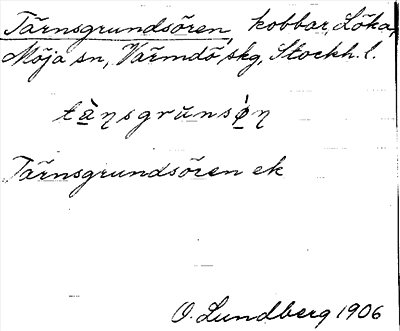 Tärnsgrundsören, kobbar, Löka,
Möja sn, Värmdö skg, Stockh. l.
tä̀ṇsgrunsö́ṇ
Tärnsgrundsören ek
O. Lundberg 1906